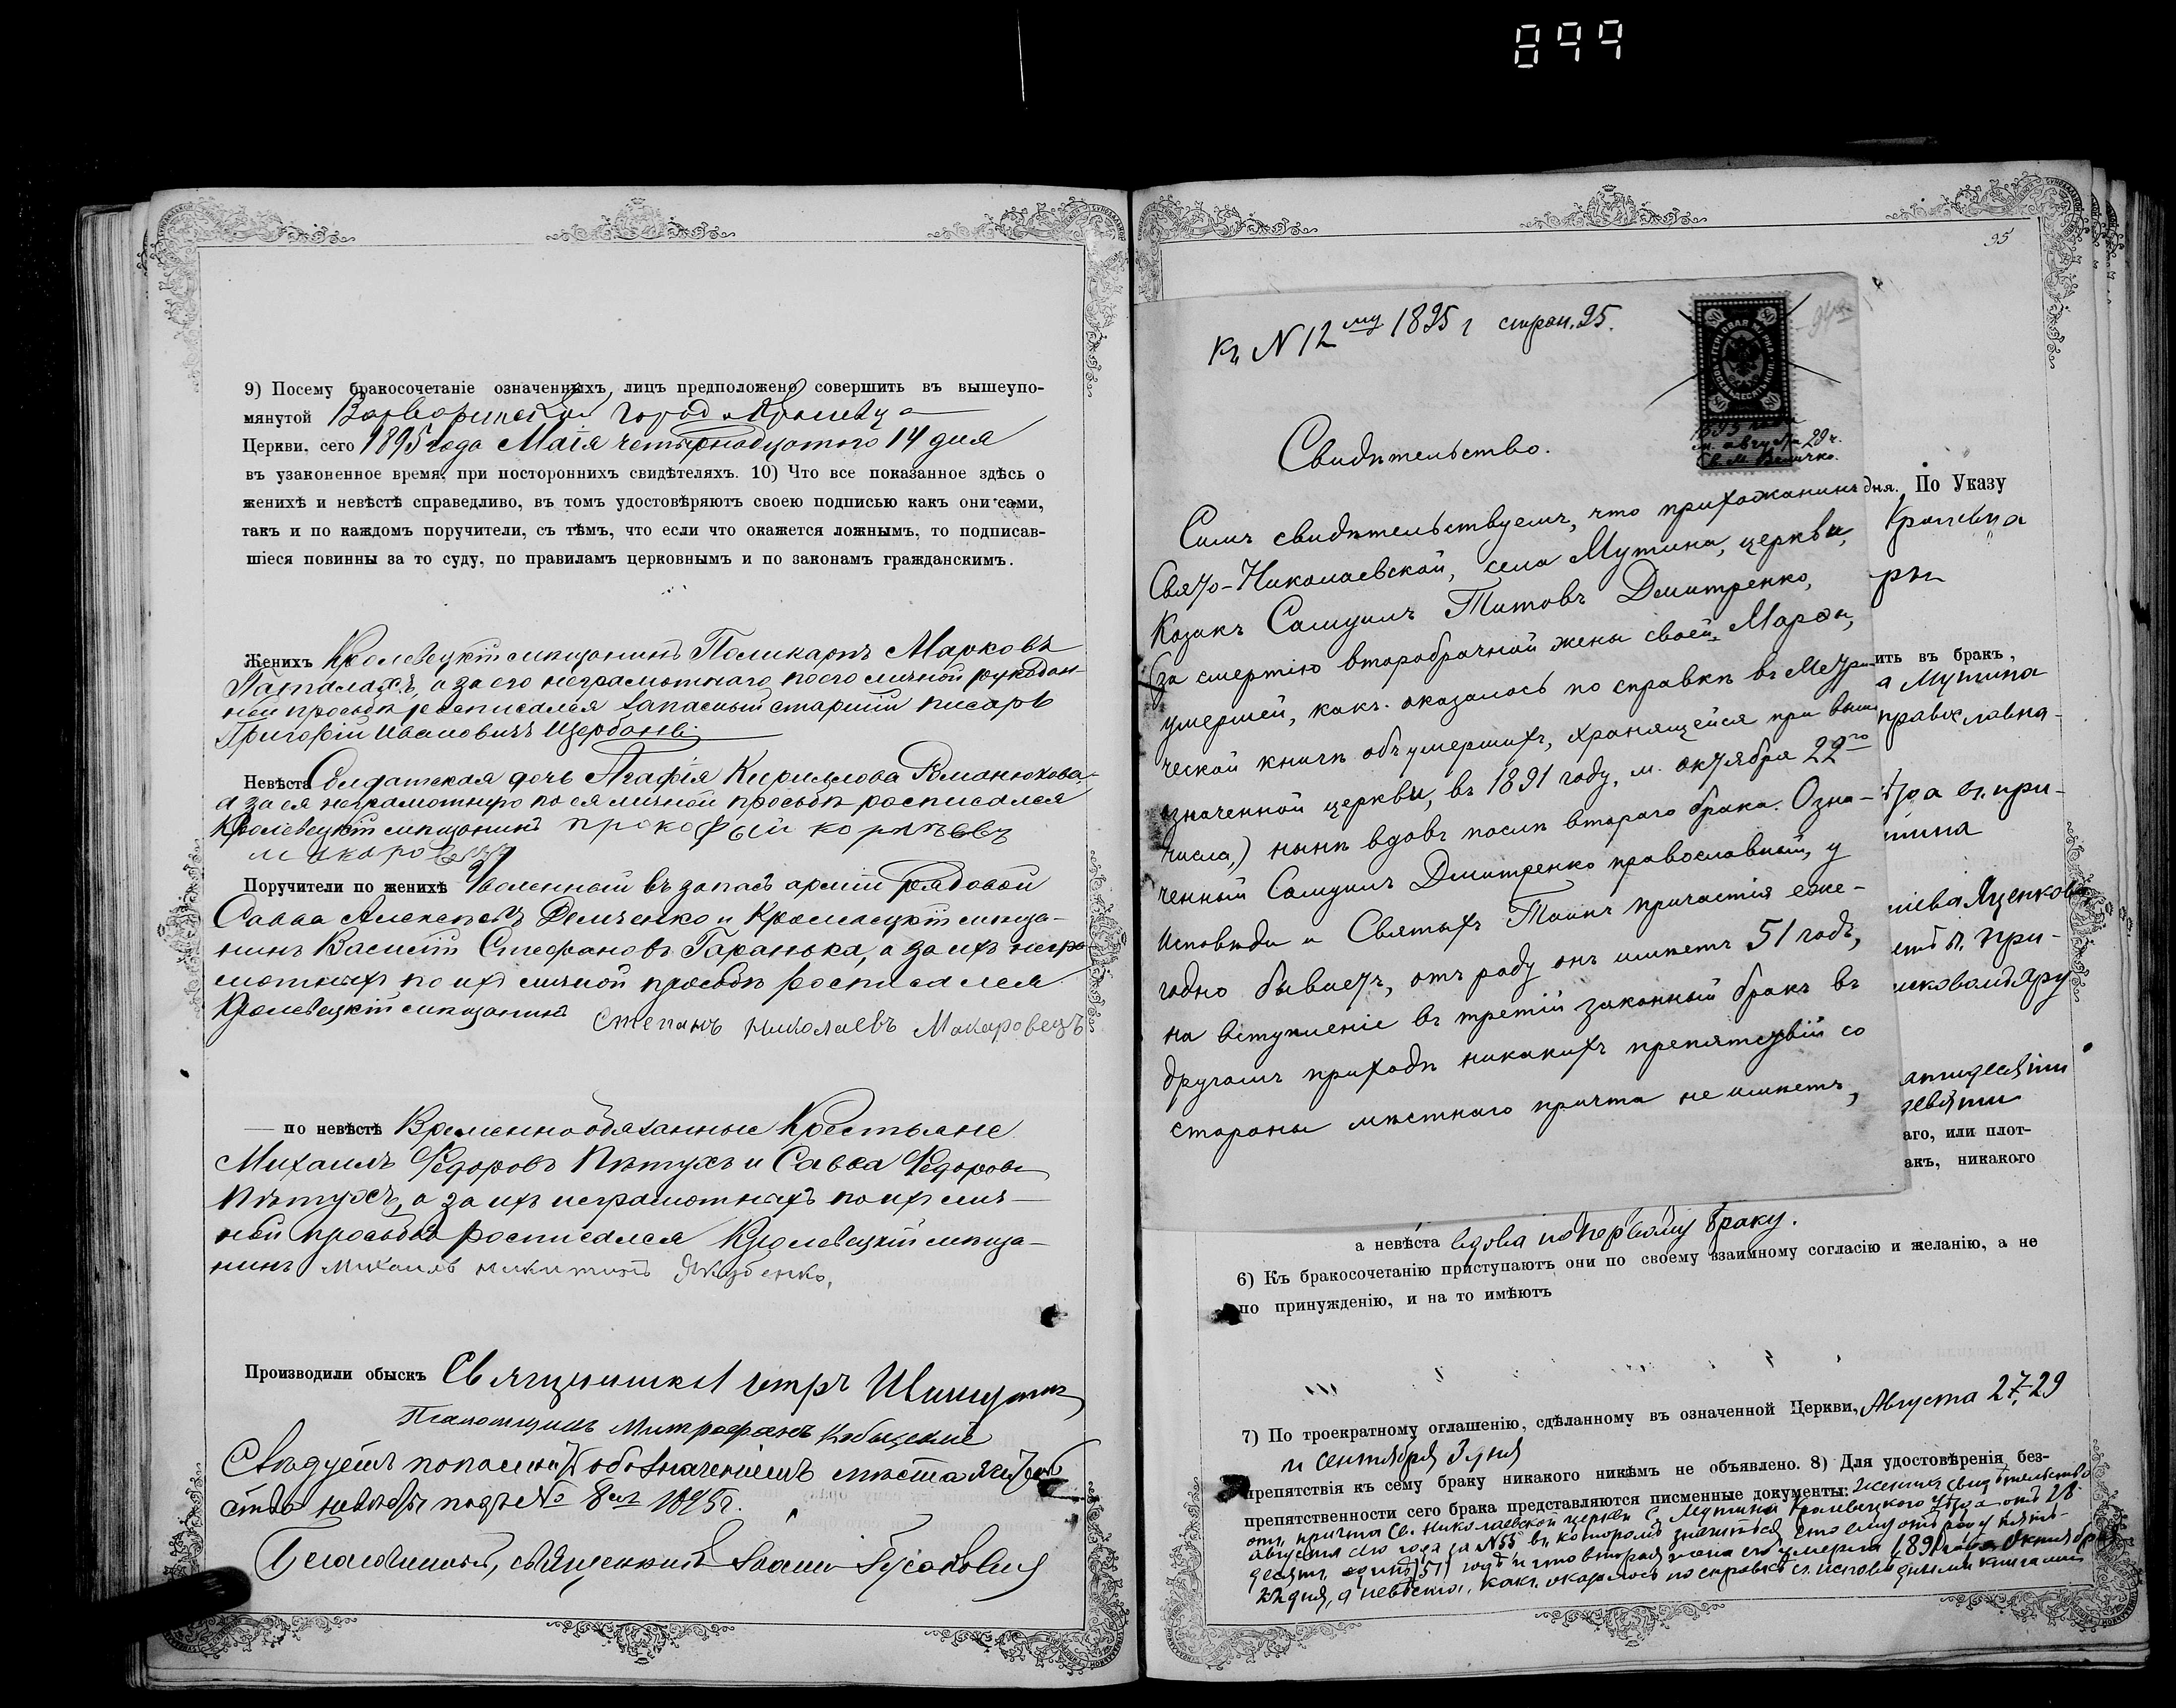 899
9) Посему бракосочетаніе означенныхъ лицъ предположено совершить въ вышеупо-
мянутой Варваринской города Кролевца
Церкви, сего 1895 года Маія четырнадцатого 14 дня
въ узаконенное время, при постороннихъ свидѣтеляхъ. 10) Что все показанное здѣсь о
женихѣ и невѣстѣ справедливо, въ томъ удостовѣряютъ своею подписью какъ они сами,
такъ и по каждомъ поручители, съ тѣмъ, что если что окажется ложнымъ, то подписав-
шіеся повинны за то суду, по правиламъ церковнымъ и по законамъ гражданскимъ.
Женихъ Кролевецкій мѣщанинъ Поликарпъ Марковъ
а за его неграмотнаго по его личной рукодан-
ной просьбѣ росписался запасный старшій писарь
Григорій Ивановичъ Щербань
Невѣста Солдатская дочь Агафія Кирилова Романюкова
а за ея неграмотную по ея личной просьбѣ росписался
Кролевецкій мѣщанинъ прокофый корнѣевъ
макаровецъ
Поручители по женихѣ Уволенный въ запасъ арміи рядовой
Савва Алексѣевъ Демченко и Кролевецкій мѣща-
нинъ Василій Стефановъ Гаранька, а за ихъ негра
мотныхъ по ихъ личной просьбѣ росписался
Кролевецкій мѣщанинъ Степанъ Николаевъ Макаровецъ
— по невѣстѣ Временнообязанные Крестьяне
Михаилъ Ѳедоровъ Пѣтухъ и Савва Ѳедоровъ
Пѣтухъ, а за ихъ неграмотныхъ по ихъ лич-
ной просьбѣ росписался Кролевецкій мѣща-
нинъ Михаилъ никитинъ Якубенко,
Производили обыскъ Священникъ Петръ
Псаломщикъ Митрофанъ
Слѣдуетъ обозначеніемъ мѣста
подъ № 8 1895 г.
Благочинный, священникъ Іоаннъ
95
къ N 12му 1895 г стран. 95.
ГЕРБОВАЯ МАРКА
ВОСЕМЬДЕСЯТЪ КОП.
80 80
80 80
1895 года
м. августа 29 ч.
Св. М. Величко.
Свидѣтельство.
Симъ свидѣтельствуемъ, что прихожанинъ
Свято-Николаевской, села Мутина, церкви,
Козакъ Самуилъ Титовъ Дмитренко,
(за смертію второбрачной жены своей Марѳы,
умершей, какъ оказалось по справкѣ въ Метри-
ческой книгѣ объ умершихъ, хранящейся при выше
означенной церкви, въ 1891 году, м. октября 22го
числа,) нынѣ вдовъ послѣ втораго брака. Озна-
ченный Самуилъ Дмитренко православный, у
Исповѣди и Святыхъ Таинъ причастія еже-
годно бываетъ, отъ роду онъ имѣетъ 51 годъ,
на вступленіе въ третій законный бракъ въ
другомъ приходѣ никакихъ препятствій со
стороны мѣстнаго причта не имѣетъ,
дня. По Указу
Кролевца
ить въ бракъ,
а Мутина
православна-
ѣзда въ при-
тина
Яценкова
при-
девяти
аго, или плот-
акъ, никакого
а невѣста вдова по первому браку.
6) Къ бракосочетанію приступаютъ они по своему взаимному согласію и желанію, а не
по принужденію, и на то имѣютъ
7) По троекратному оглашенію, сдѣланному въ означенной Церкви, Августа 27, 29
и сентября 3 дня
препятствія къ сему браку никакого никѣмъ не объявлено. 8) Для удостовѣренія без-
препятственности сего брака представляются писменные документы: жениха свидѣтельство
отъ причта Св. Николаевской церкви с. Мутина Кролевецкого уѣзда отъ 28
августа сего года за N 55 въ которомъ значиться что ему отъ роду пять-
десятъ одинъ (51) годъ и что вторая жена его умерла 1891 года Октября
22 дня, а невѣсты, какъ оказалось по справкѣ съ исповѣдными книгами